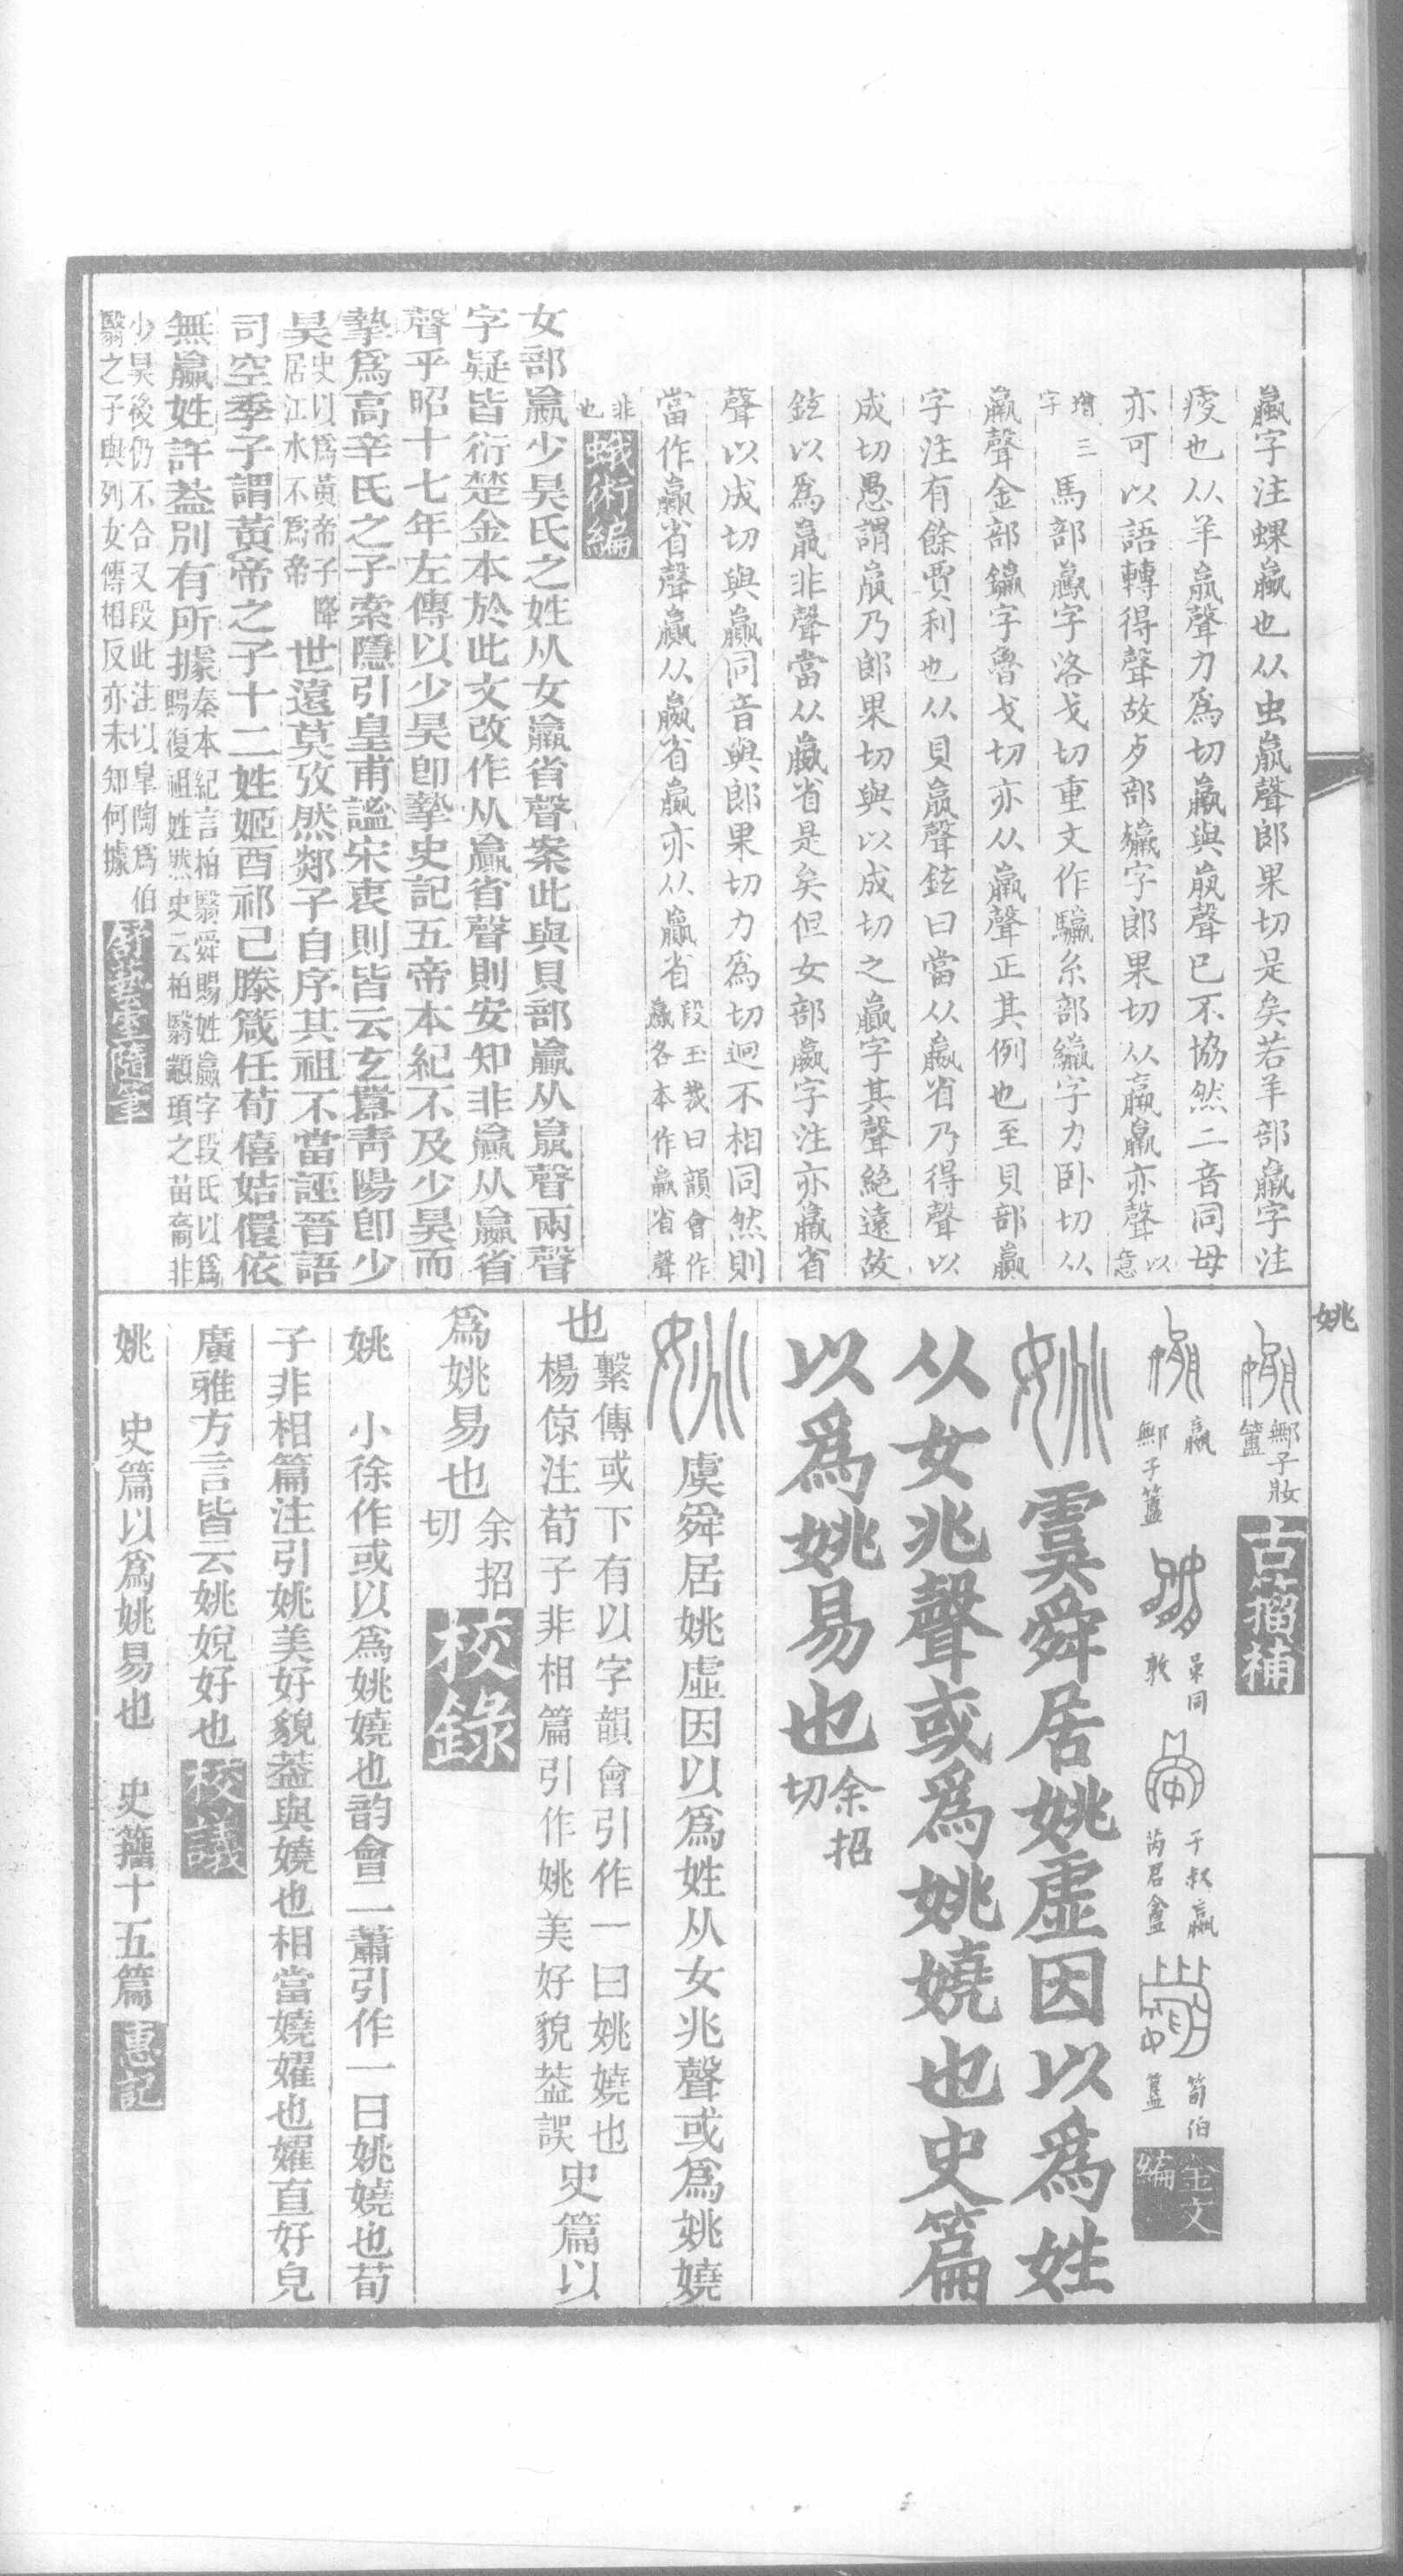 蠃字注蜾蠃也从虫𣎆聲郎果切是矣若羊部羸字注
瘦也从羊𣎆聲力爲切羸與𣎆聲已不協然二音同母
亦可以語轉得聲故歺部字郎果切从羸羸亦聲以意
增三字馬部驘字洛戈切重文作騾糸部纙字力卧切从
羸聲金部鑘字魯戈切亦从羸聲正其例也至貝部贏
字注有餘賈利也从貝𣎆聲鉉曰當从嬴省乃得聲以
成切愚謂𣎆乃郎果切與以成切之贏字其聲絶遠故
鉉以爲𣎆非聲當从嬴省是矣但女部嬴字注亦羸省
聲以成切與贏同音與郎果切力爲切迥不相同然則
當作贏省聲贏从嬴省嬴亦从贏省段玉裁曰韻會作嬴各本作羸省聲
非也蛾術編
女部嬴少昊氏之姓从女羸省聲案此與貝部贏从𣎆聲兩聲
字疑皆衍楚金本於此文改作从贏省聲則安知非贏从嬴省
聲乎昭十七年左傳以少昊卽摯史記五帝本紀不及少昊而
摯爲高辛氏之子索隱引皇甫謐宋衷則皆云玄囂靑陽卽少
昊史以爲黃帝子降居江水不爲帝世遠莫攷然郯子自序其祖不當誣晉語
司空季子謂黃帝之子十二姓姬酉祁己滕箴任荀僖姞儇依
無嬴姓許葢別有所據秦本紀言柏翳舜賜姓嬴字段氏以爲賜復祖姓然史云柏翳顓頊之苗裔非
少昊後仍不合又段此注以皐陶爲伯翳之子與列女傳相反亦未知何據舒藝室隨筆
姚
鄦子妝簠古籀補
嬴鄦子簠 敦 子叔嬴芮君盦 筍伯簠金文編
虞舜居姚虛因以爲姓
从女兆聲或爲姚嬈也史篇
以爲姚易也余招切
虞舜居姚虛因以爲姓从女兆聲或爲姚嬈
也繫傳或下有以字韻會引作一曰姚嬈也楊倞注荀子非相篇引作姚美好貌葢誤史篇以
爲姚易也余招切校錄
姚 小徐作或以爲姚嬈也韵會二蕭引作一曰姚嬈也荀
子非相篇注引姚美好貌葢與嬈也相當嬈嬥也嬥直好皃
廣雅方言皆云姚娧好也校議
姚 史篇以爲姚易也 史籒十五篇惠記